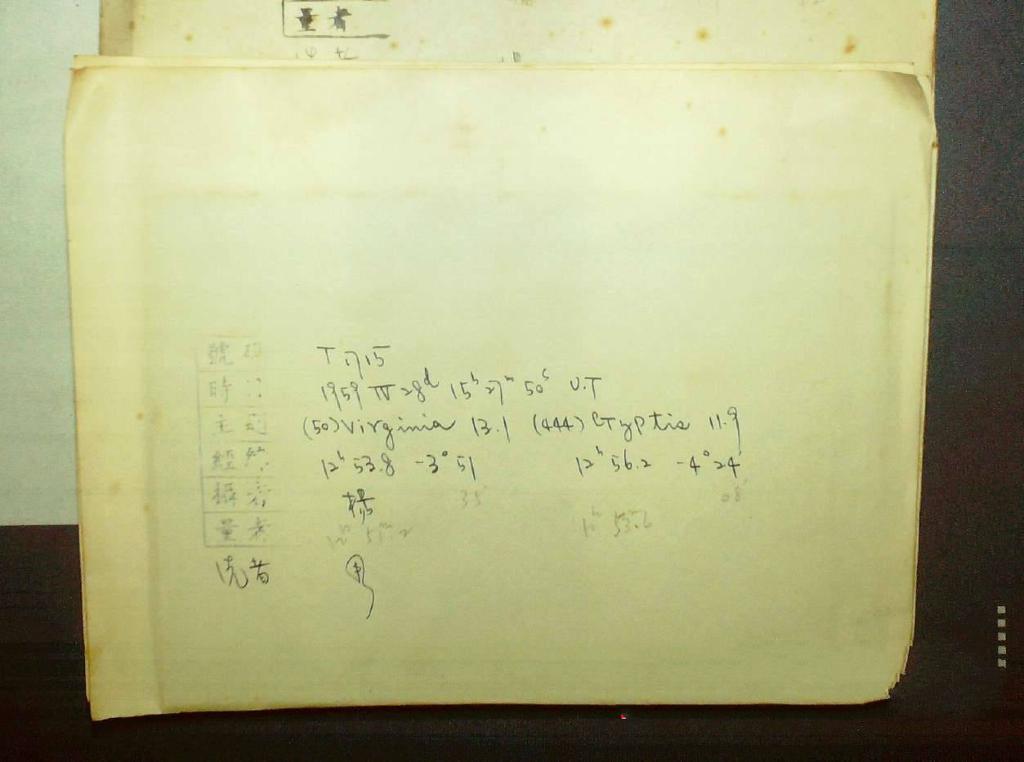 量者
號
T 1715
時
1959 IV 28d 15h 27m 50s U.T
主
(50) Virginia 13.1 (444) Gyptis 11.9
經
12h 53.8 -3° 51 12h 56.2 -4° 24'
攝者
楊 35' 08'
量者
12h 51m.2 12h 53m.6
洗者